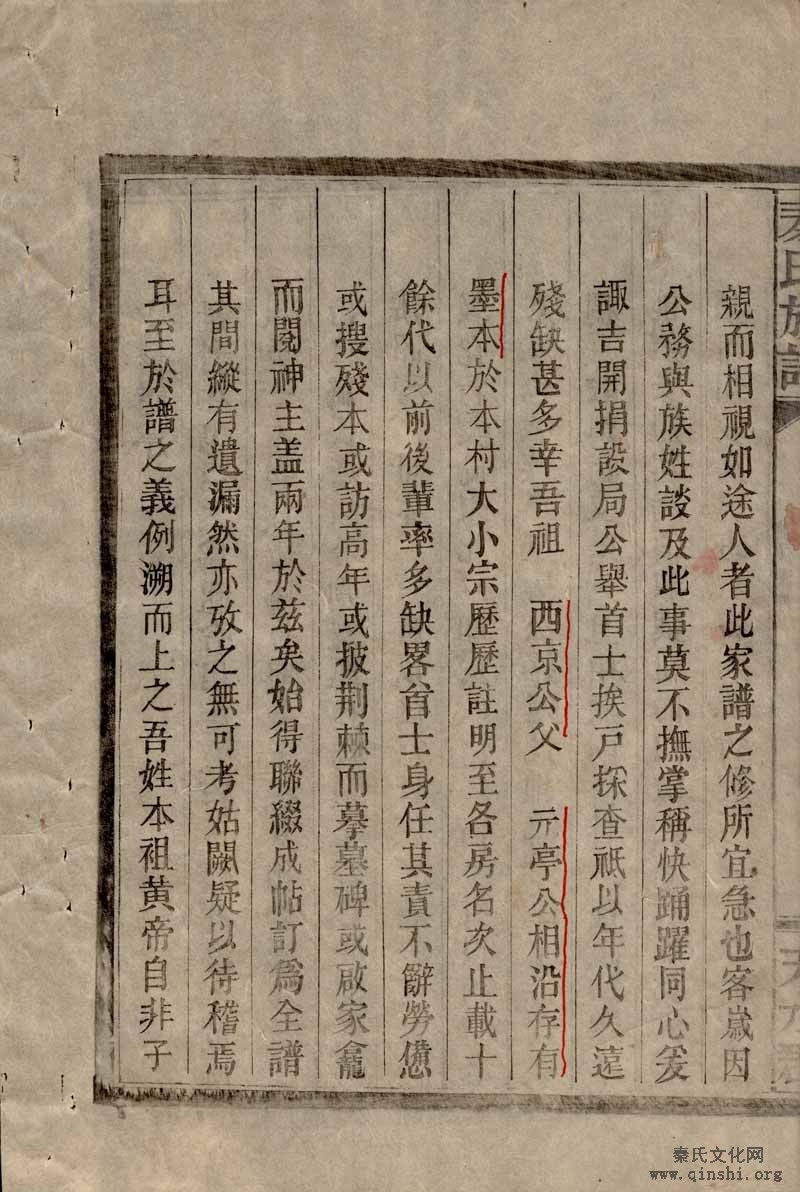 秦氏族譜
親而相視如途人者此家譜之修所宜急也客歲因
公務與族姓談及此事莫不撫掌稱快踊躍同心爰
諏吉開捐設局公舉首士挨戸探查祇以年代久遠
殘缺甚多幸吾祖　西京公父　元亭公相沿存有
墨本於本村大小宗歷歷註明至各房名次止載十
餘代以前後輩率多缺畧首士身任其責不辭勞憊
或搜殘本或訪高年或披荆棘而摹墓碑或啟家龕
而閱神主盖兩年於兹矣始得聯綴成帖訂爲全譜
其間縱有遺漏然亦攷之無可考姑闕疑以待稽焉
耳至於譜之義例溯而上之吾姓本祖黄帝自非子
秦氏文化网
www.qinshi.org